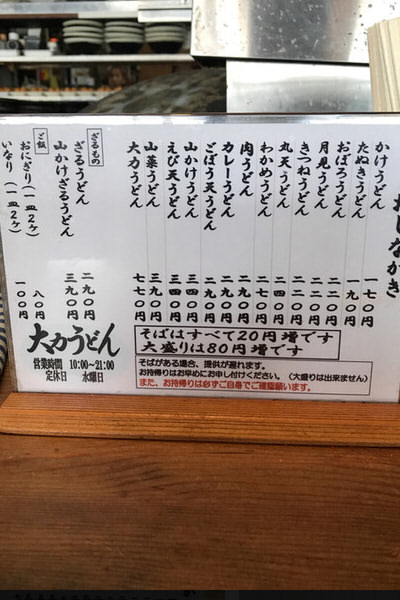 おしながき
かけうどん 一七〇円
たぬきうどん 一九〇円
おぼろうどん 二〇〇円
月見うどん 二〇〇円
きつねうどん 二〇〇円
丸天うどん 二四〇円
わかめうどん 二七〇円
肉うどん 二九〇円
カレーうどん 二九〇円
ごぼう天うどん 二九〇円
山かけうどん 三四〇円
えび天うどん 三四〇円
山菜うどん 三九〇円
大力うどん 七七〇円
ざるもの
ざるうどん 二九〇円
山かけざるうどん 三九〇円
ご飯
おにぎり(一皿2ヶ) 八〇円
いなり(一皿2ヶ) 一〇〇円
大力うどん
営業時間 10:00~21:00
定休日 水曜日
そばはすべて20円増です
大盛りは80円増です
そばがある場合、提供が遅れます。
お持帰りはお早めにお申し付けください。(大盛りは出来ません)
また、お持帰りは必ずご自身でご確認願います。